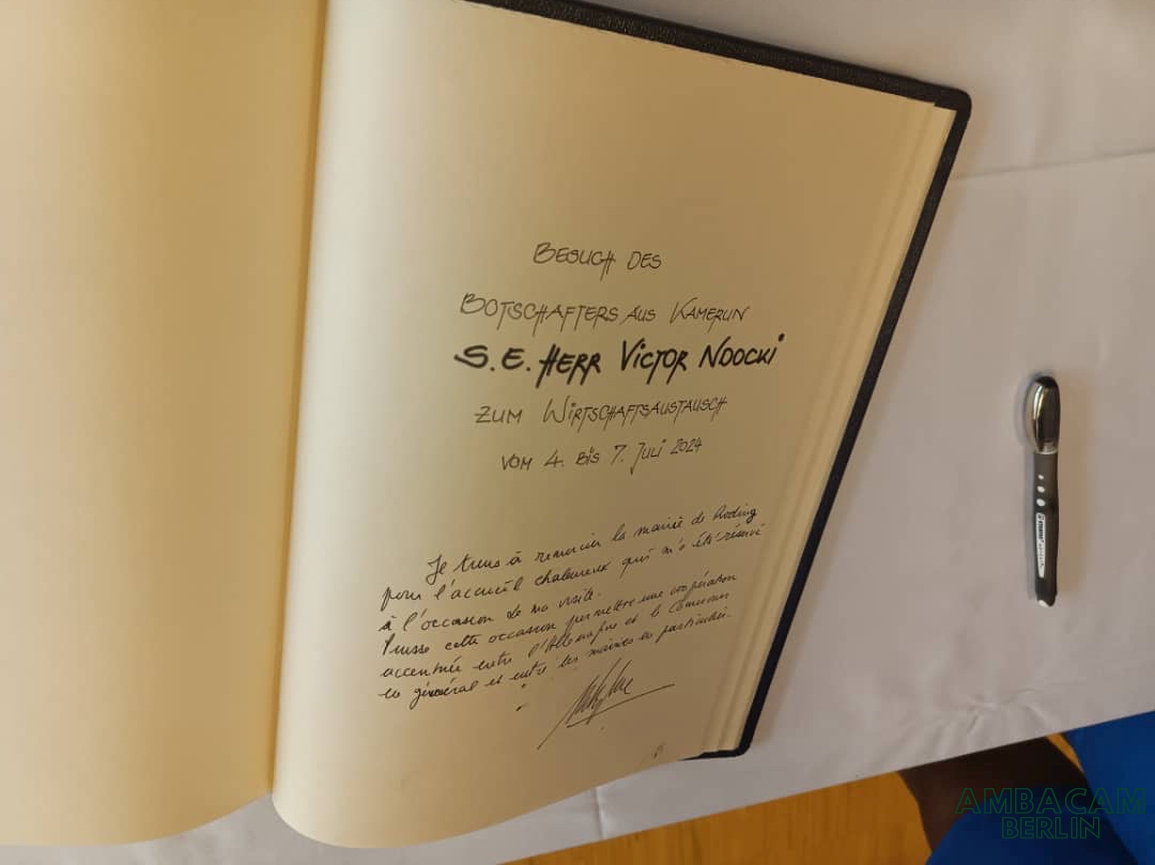 BESUCH DES
BOTSCHAFTERS AUS KAMERUN
S.E. HERR VICTOR NDOCKI
ZUM WIRTSCHAFTSAUSTAUSCH
VOM 4. BIS 7. JULI 2024
Je tiens à remercier la mairie de Roding
pour l'accueil chaleureux qui m'a été réservé
à l'occasion de ma visite.
Puisse cette occasion permettre une coopération
accentuée entre l'Allemagne et le Cameroun
en général et entre les mairies en particulier.
AMBACAM
BERLIN